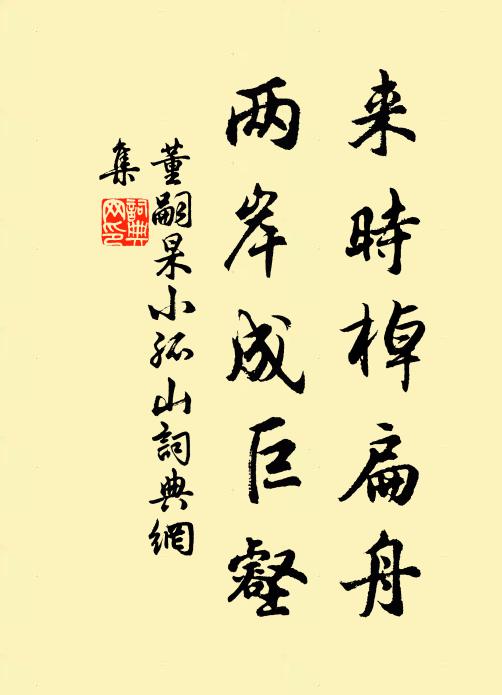 来時棹扁舟
两岸成巨壑
董嗣杲小孤山詞典網
集
詞典網印